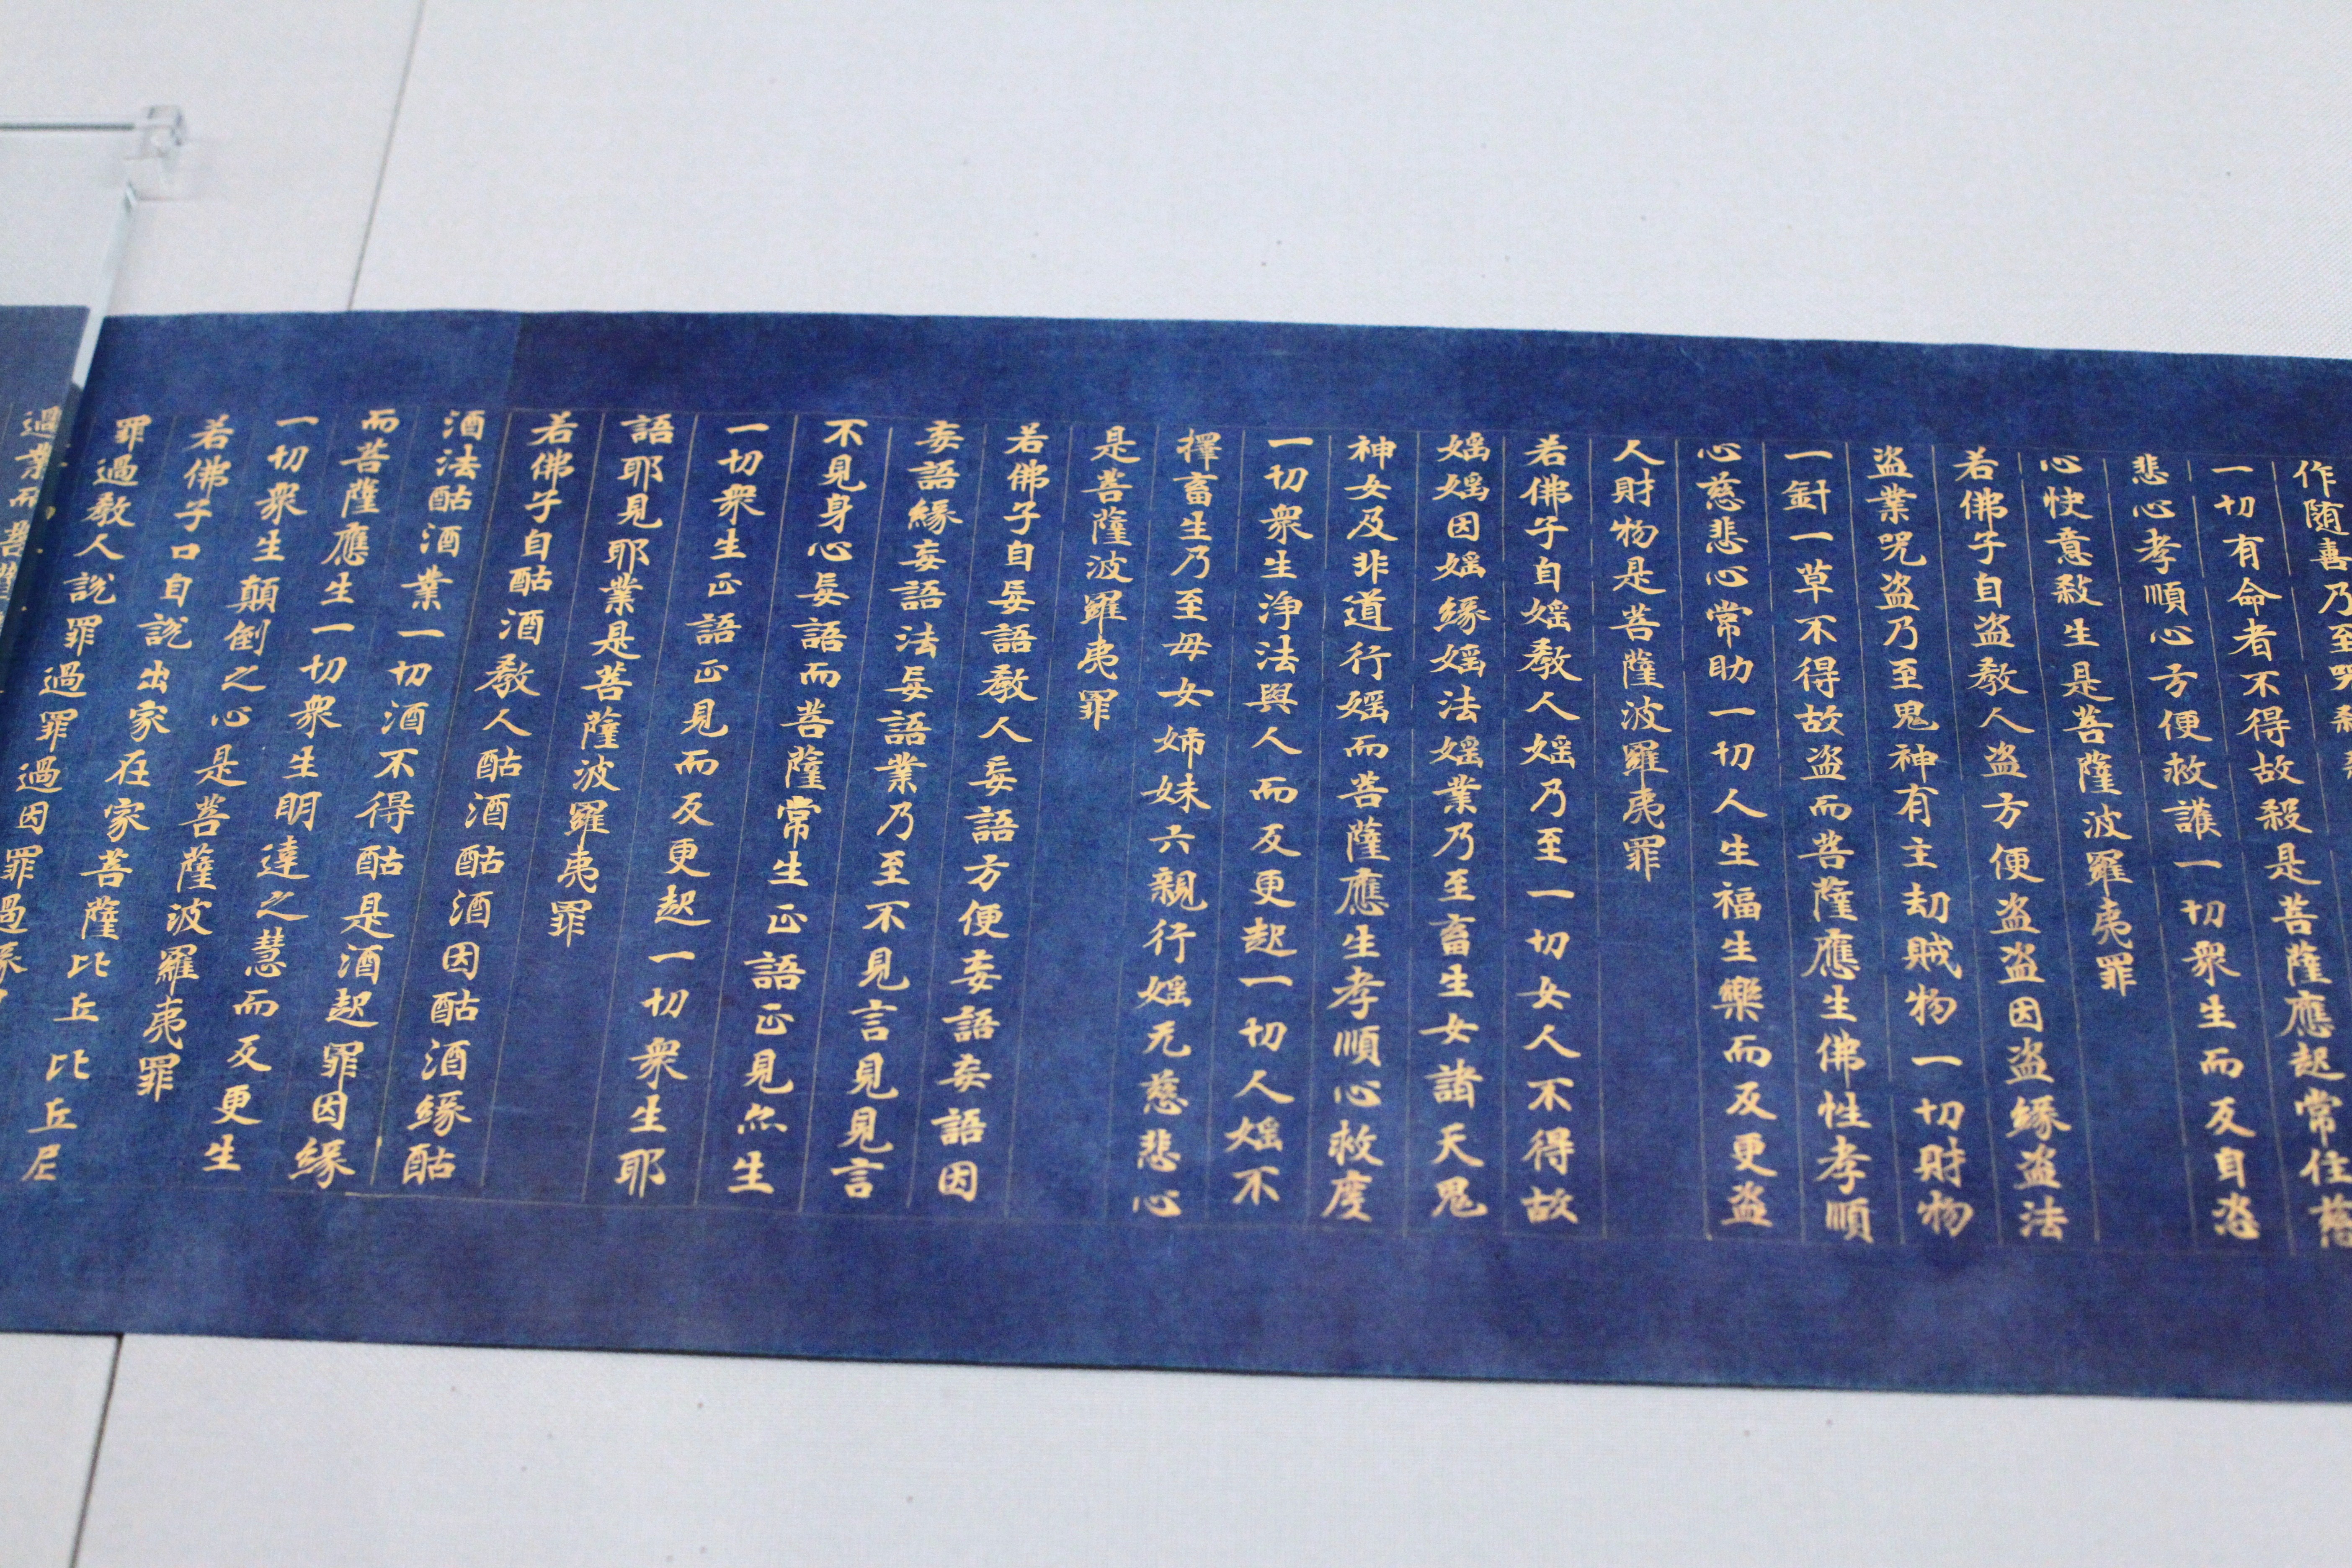 作随喜乃至呪
一切有命者不得故殺是菩薩應起常住慈
悲心孝順心方便救護一切衆生而反自恣
心快意殺生是菩薩波羅夷罪
若佛子自盗教人盗方便盗盗因盗緣盗法
盗業呪盗乃至鬼神有主劫賊物一切財物
一針一草不得故盗而菩薩應生佛性孝順
心慈悲心常助一切人生福生樂而反更盗
人財物是菩薩波羅夷罪
若佛子自婬教人婬乃至一切女人不得故
婬婬因婬緣婬法婬業乃至畜生女諸天鬼
神女及非道行婬而菩薩應生孝順心救度
一切衆生浄法與人而反更起一切人婬不
擇畜生乃至母女姉妹六親行婬无慈悲心
是菩薩波羅夷罪
若佛子自妄語教人妄語方便妄語妄語因
妄語緣妄語法妄語業乃至不見言見見言
不見身心妄語而菩薩常生正語正見亦生
一切衆生正語正見而反更起一切衆生耶
語耶見耶業是菩薩波羅夷罪
若佛子自酤酒教人酤酒酤酒因酤酒緣酤
酒法酤酒業一切酒不得酤是酒起罪因緣
而菩薩應生一切衆生明達之慧而反更生
一切衆生顛倒之心是菩薩波羅夷罪
若佛子口自說出家在家菩薩比丘比丘尼
罪過教人說罪過罪過因罪過緣
過業而菩薩